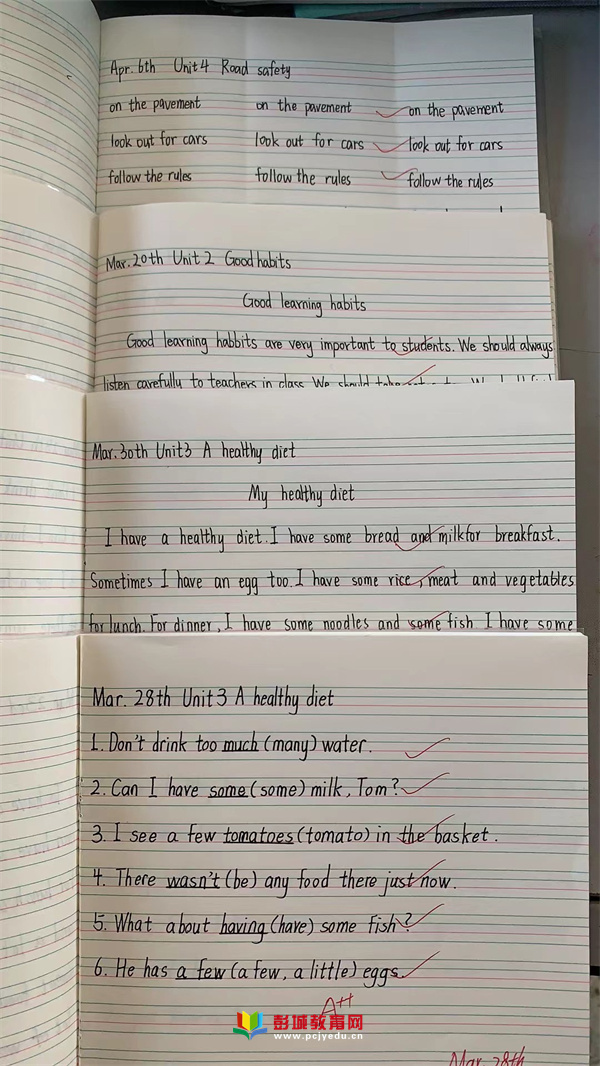 Apr. 6th Unit 4 Road safety
on the pavement on the pavement on the pavement
look out for cars look out for cars look out for cars
follow the rules follow the rules follow the rules
Mar. 20th Unit 2 Good habits
Good learning habits
Good learning habbits are very important to students. We should always
listen carefully to teachers in class. We should take
Mar. 30th Unit3 A healthy diet
My healthy diet
I have a healthy diet. I have some bread and milk for breakfast.
Sometimes I have an egg too. I have some rice, meat and vegetables
for lunch. For dinner, I have some noodles and some fish. I have some
Mar. 28th Unit 3 A healthy diet
1. Don't drink too much (many) water.
2. Can I have some (some) milk, Tom?
3. I see a few tomatoes (tomato) in the basket.
4. There wasn't (be) any food there just now.
5. What about having (have) some fish?
6. He has a few (a few, a little) eggs.
A++
彭城教育网
www.pcjyedu.cn
Mar. 28th